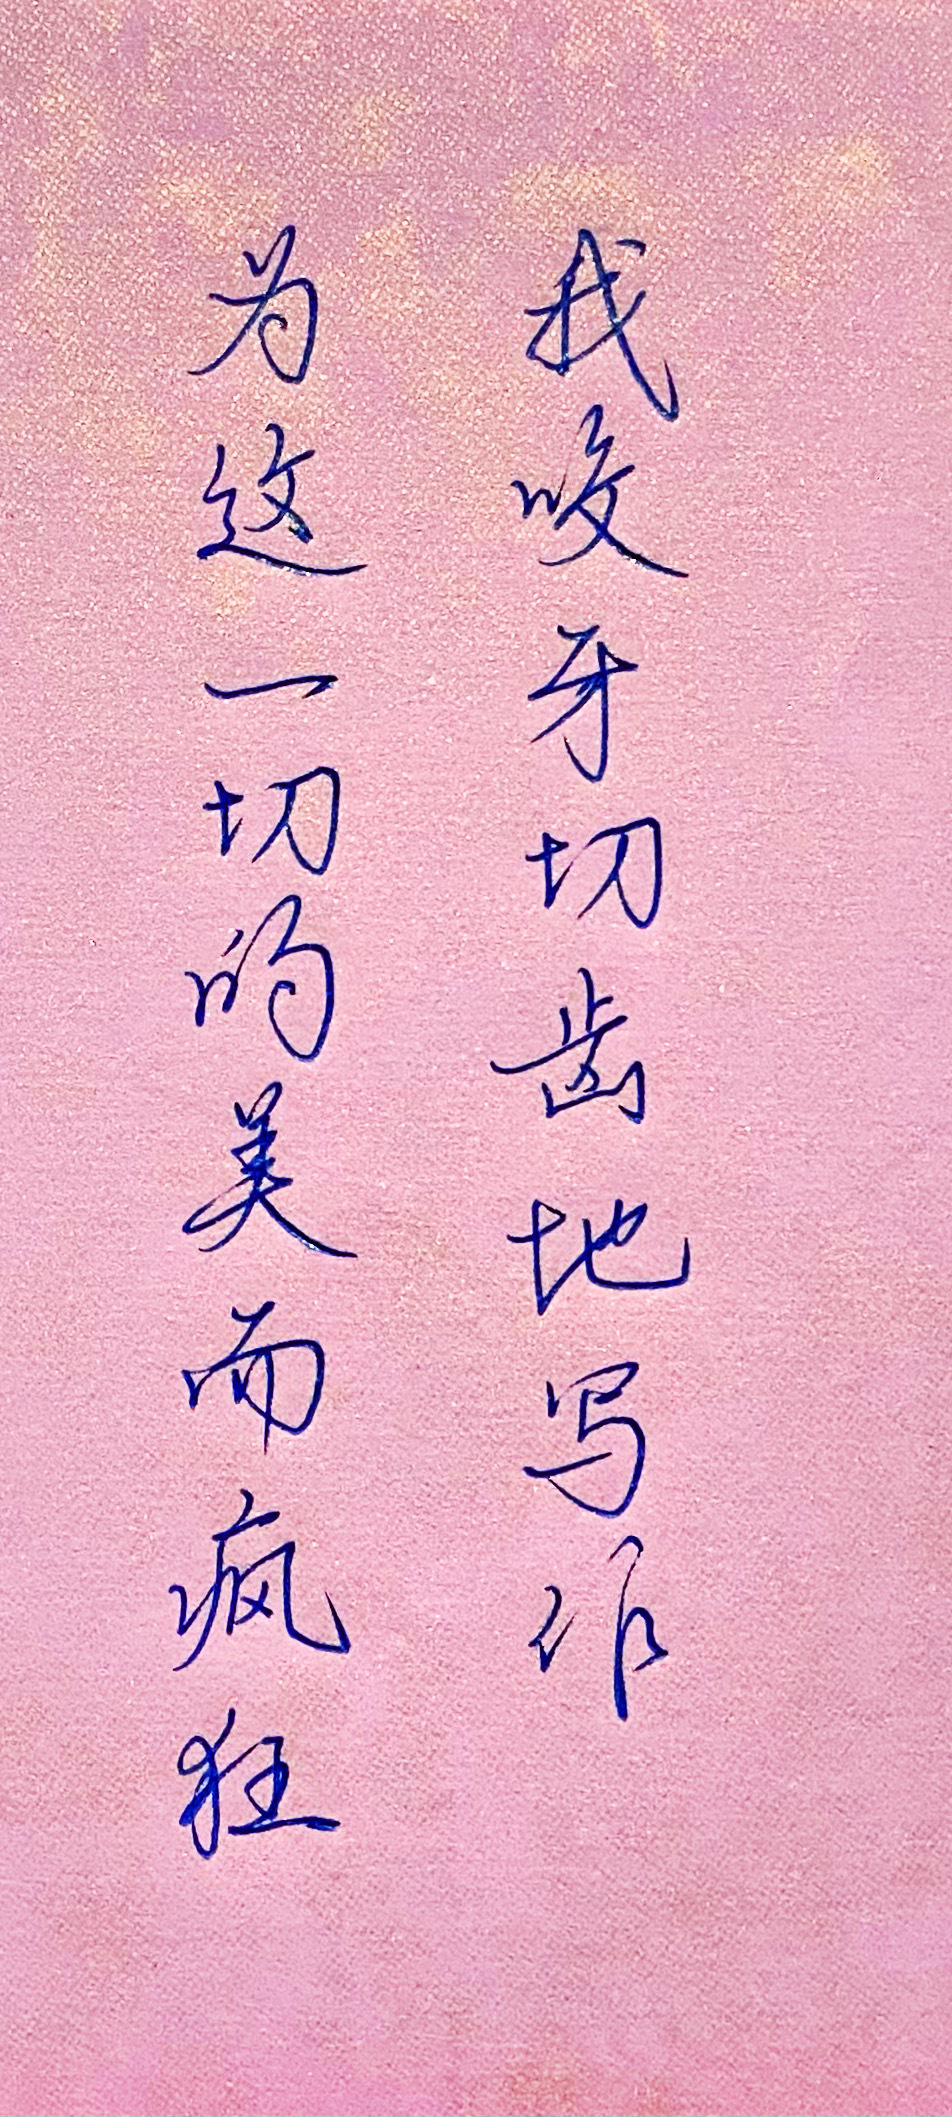 我咬牙切齿地写作
为这一切的美而疯狂